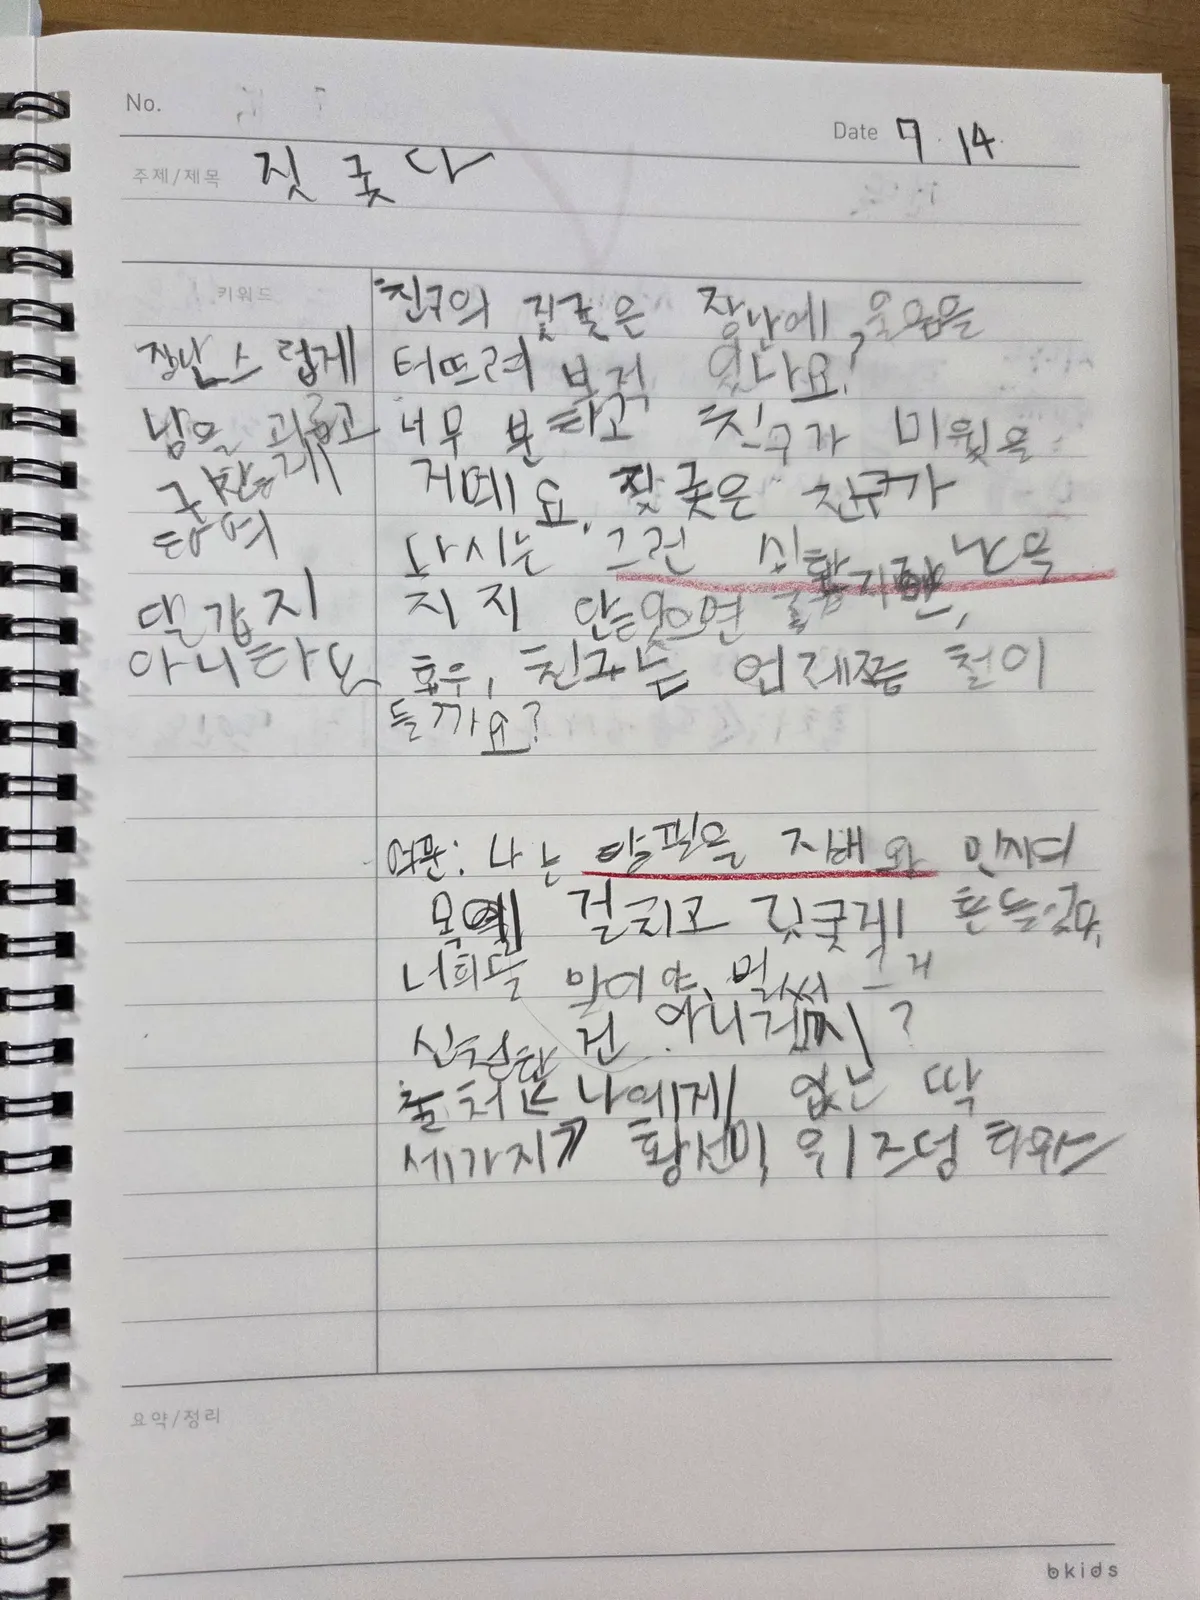 No.
Date 7. 14.
주제/제목 짓궂다
키워드
장난스럽게
남을 괴롭고
귀찮게
하여
달갑지
아니하다
친구의 짓궂은 장난에, 울음을
터뜨려 본적 있나요?
너무 분하고 친구가 미웠을
거예요. 짓궂은 친구가
다시는 그런 심한 장난을
치지 않는
휴우, 친구는 언제쯤 철이
들까요?
예문: 나는 연필을 지배와 민재
목에 걸치고 짓궂게 흔들었다.
너희들 말이야, 벌써 그거
신청한 건 아니겠지?
출처: 나에게 없는 딱
세가지 황선미, 위즈덤 하우스
요약/정리
bkids